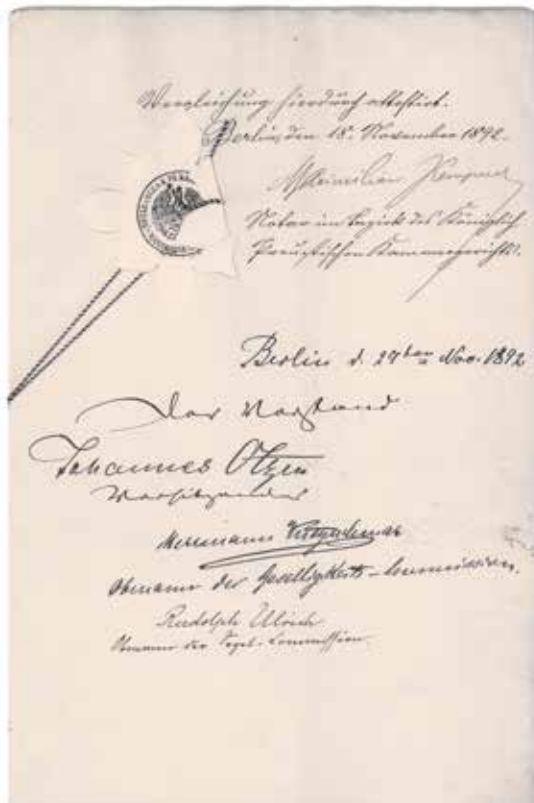 Vergleichung hierdurch attestirt.
Berlin, den 18. November 1892.
Maximilian Kempner
Notar im Bezirk des Königlich
Preußischen Kammergerichts.
Berlin d. 27ten Nov. 1892
Der Vorstand
Johannes Otzen
Vorsitzender
Herrmann
Obmann der Geselligkeits-Commission.
Rudolph Ulrich
Obmann der Segel-Commission.